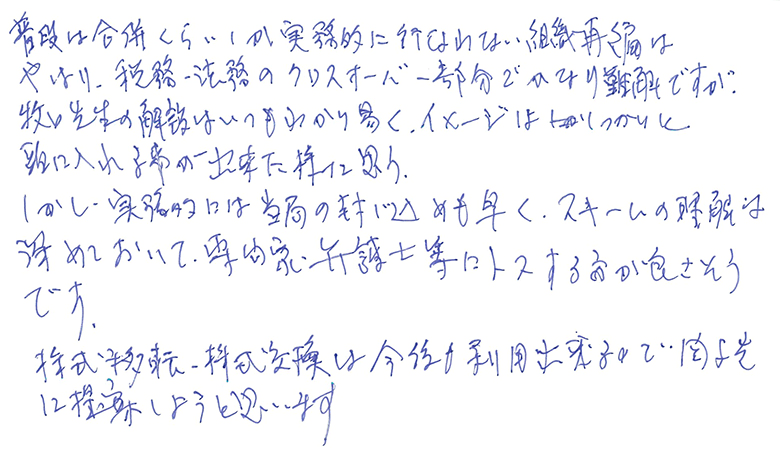 普段は合併くらいしか実務的に行なわない組織再編は
やはり、税務-法務のクロスオーバー部分でかなり難解ですが、
牧口先生の解説はいつもわかり易く、イメージはしっかりと
頭に入れる事が出来た様に思う。
しかし、実務的には当局の封じ込めも早く、スキームの理解は
深めておいて、専門家、弁護士等にトスする方が良さそう
です。
株式移転-株式交換は今後も利用出来るので
に提案しようと思います